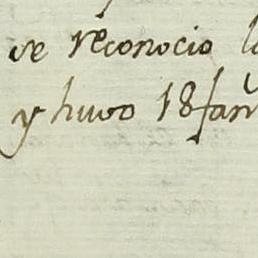 se reconocio l
y huvo 18 fan